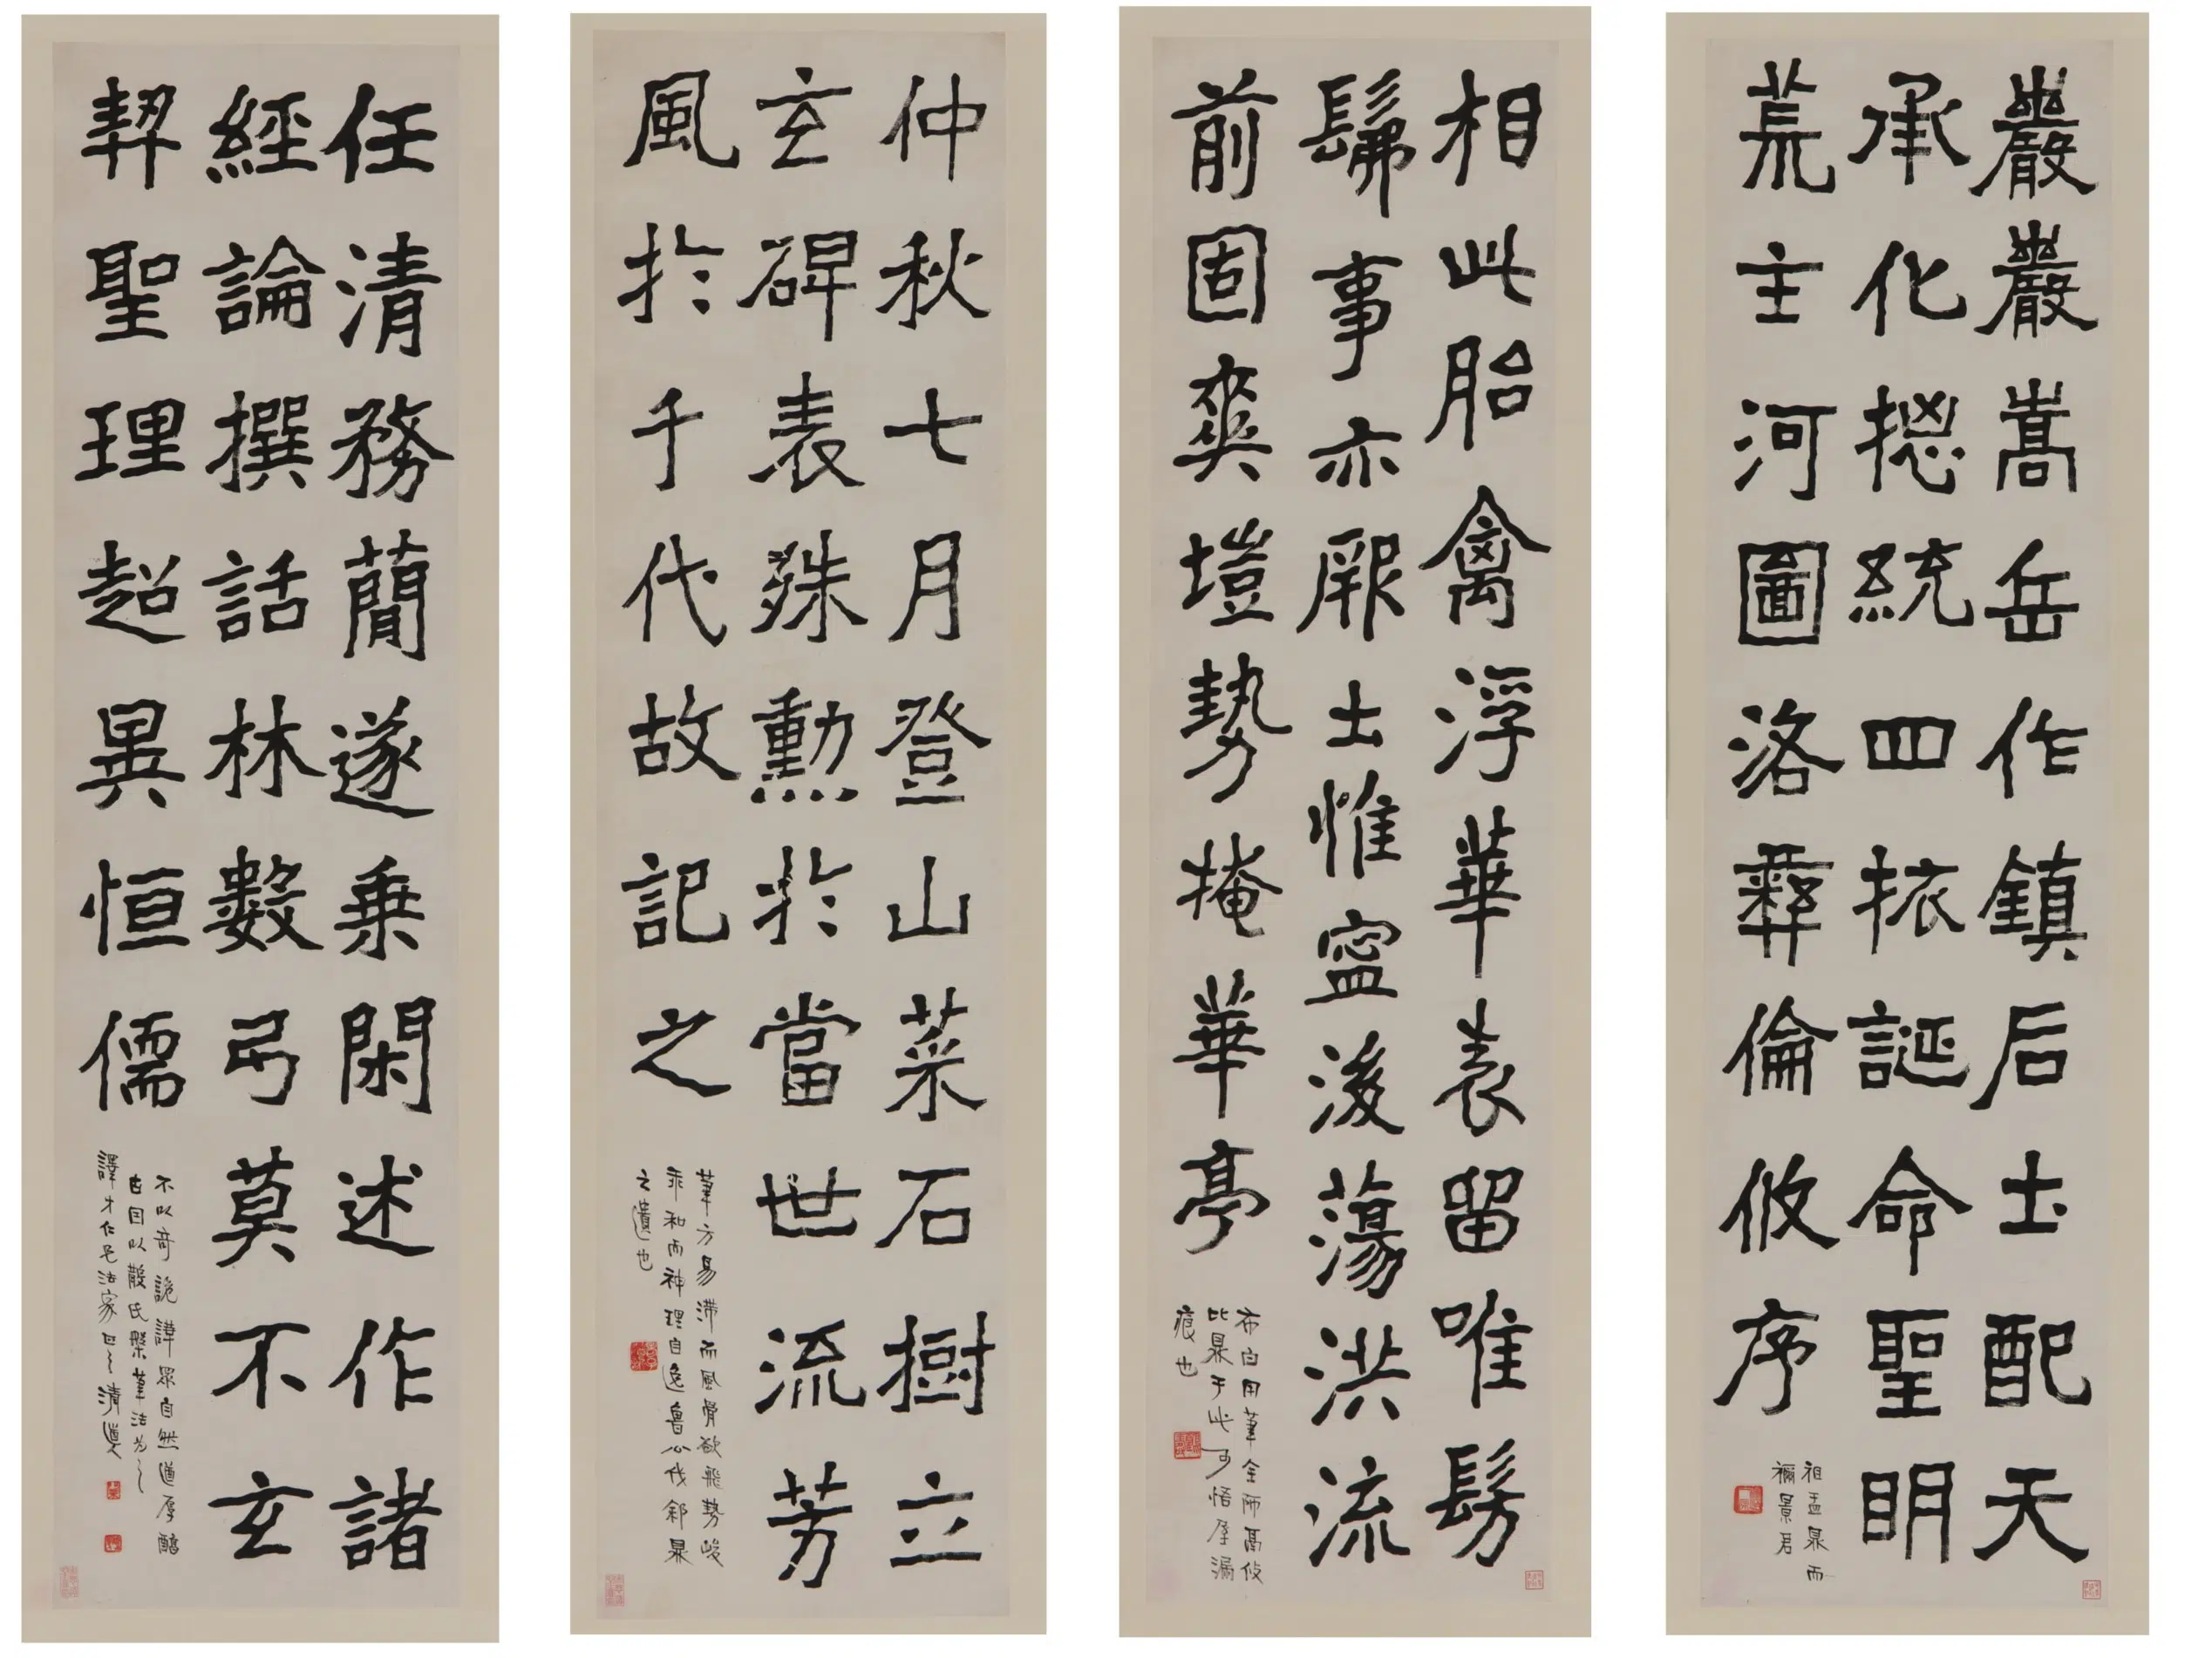 巖巖嵩岳作鎮后土配天
承化揔統四誕命聖明
荒主河圖洛彝倫攸序
祖孟鼎而
禰景君
相此胎禽浮華表留唯髣
髴事亦厥土惟寧後蕩洪流
前固爽塏勢掩華亭
布白用筆全師鬲攸
比鼎于此可悟屋漏
痕也
仲秋七月登山菜石樹立
玄碑表殊勳於當世流芳
風於千代故記之
筆方易滯而風骨欲飛勢峻
乖和而神理自逸魯公伐鼎
之遺也
任清務蕳遂乘閑述作諸
經論撰話林數弓莫不玄
契聖理超異恒儒
不以奇詭譁眾自然遒厚醰
古因以散氏槃筆法為之
譯才仁兄法家正之清道人